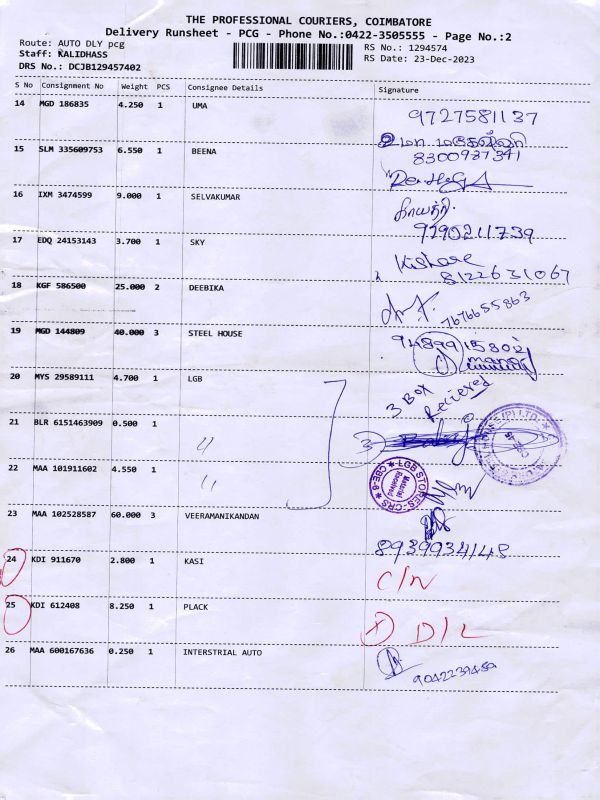 THE PROFESSIONAL COURIERS, COIMBATORE
Delivery Runsheet - PCG - Phone No.:0422-3505555 - Page No.:2
Route: AUTO DLY pcg
RS No.: 1294574
Staff: KALIDHASS
RS Date: 23-Dec-2023
DRS No.: DCJB129457402
S No Consignment No Weight PCS Consignee Details Signature
14 MGD 186835 4.250 1 UMA
9727581137
உமா மகேஸ்வரி
8300937341
15 SLM 335609753 6.550 1 BEENA
16 IXM 3474599 9.000 1 SELVAKUMAR
காயத்ரி.
9290211739
17 EDQ 24153143 3.700 1 SKY
Kishore
8122631067
18 KGF 586500 25.000 2 DEEBIKA
7676655863
19 MGD 144809 40.000 3 STEEL HOUSE
20 MYS 29589111 4.700 1 LGB
3 BOX
Recieved
21 BLR 6151463909 0.500 1 "
3
22 MAA 101911602 4.550 1 "
LGB STORES-CRS
CBE-6
Material
Received
23 MAA 102528587 60.000 3 VEERAMANIKANDAN
8939934148
24 KDI 911670 2.800 1 KASI
C/N
25 KDI 612408 8.250 1 PLACK
D/L
26 MAA 600167636 0.250 1 INTERSTRIAL AUTO
9042239489